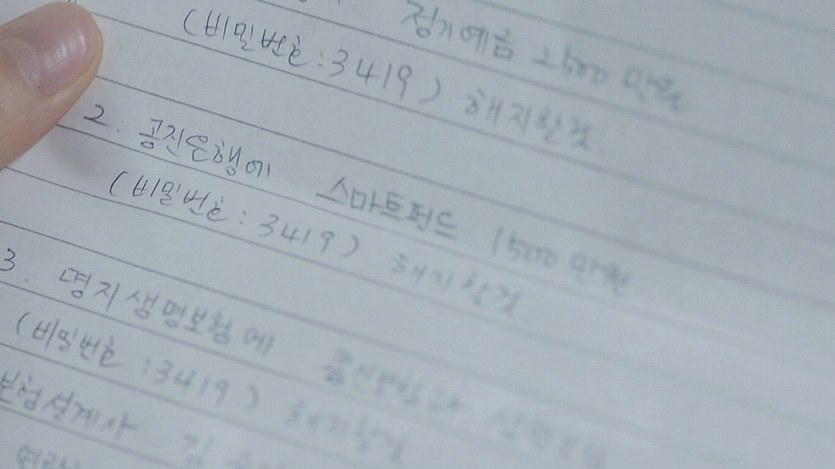 정기예금 2500 만원
(비밀번호:3419) 해지할것
2. 공진은행에 스마트펀드 1500 만원
(비밀번호:3419) 해지할것
3. 명지생명보험에
(비밀번호:3419) 해지할것
보험설계사 김